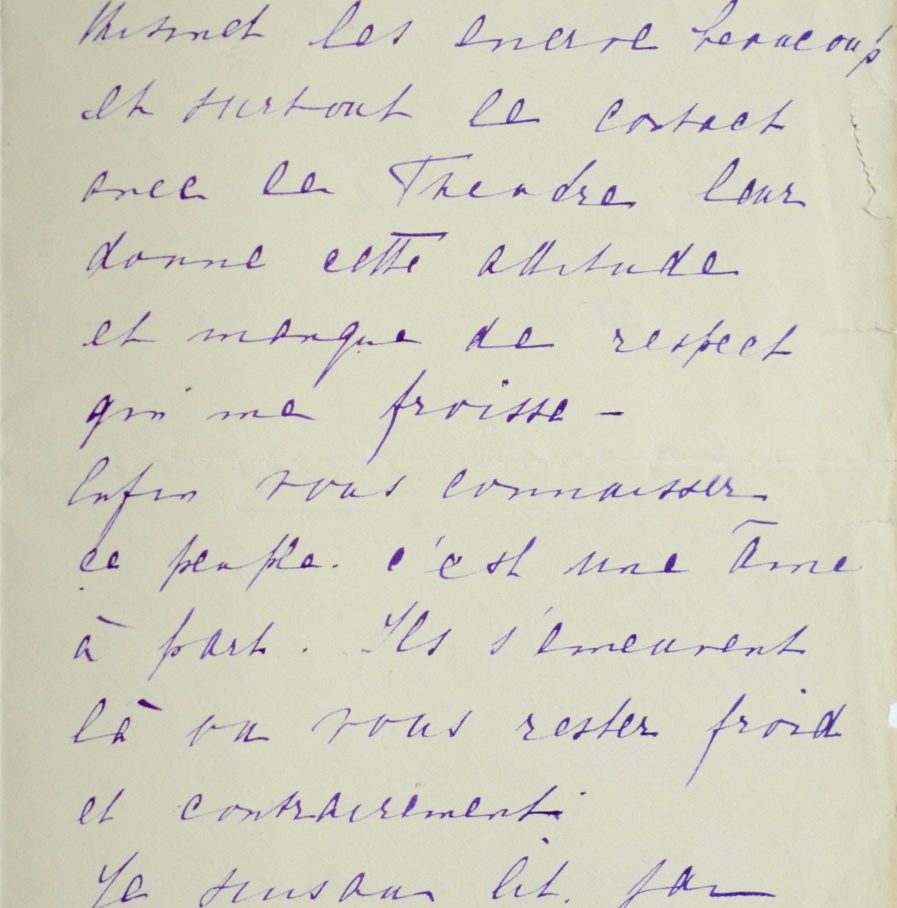 les enerve beaucoup
et surtout le contact
avec le Theadre leur
donne cette attitude
et manque de respect
qui me froisse –
Enfin vous connaisser
ce peuple. c'est une âme
à part. Ils s'emeuvent
là ou vous rester froid
et contrairement
Je suis au lit.